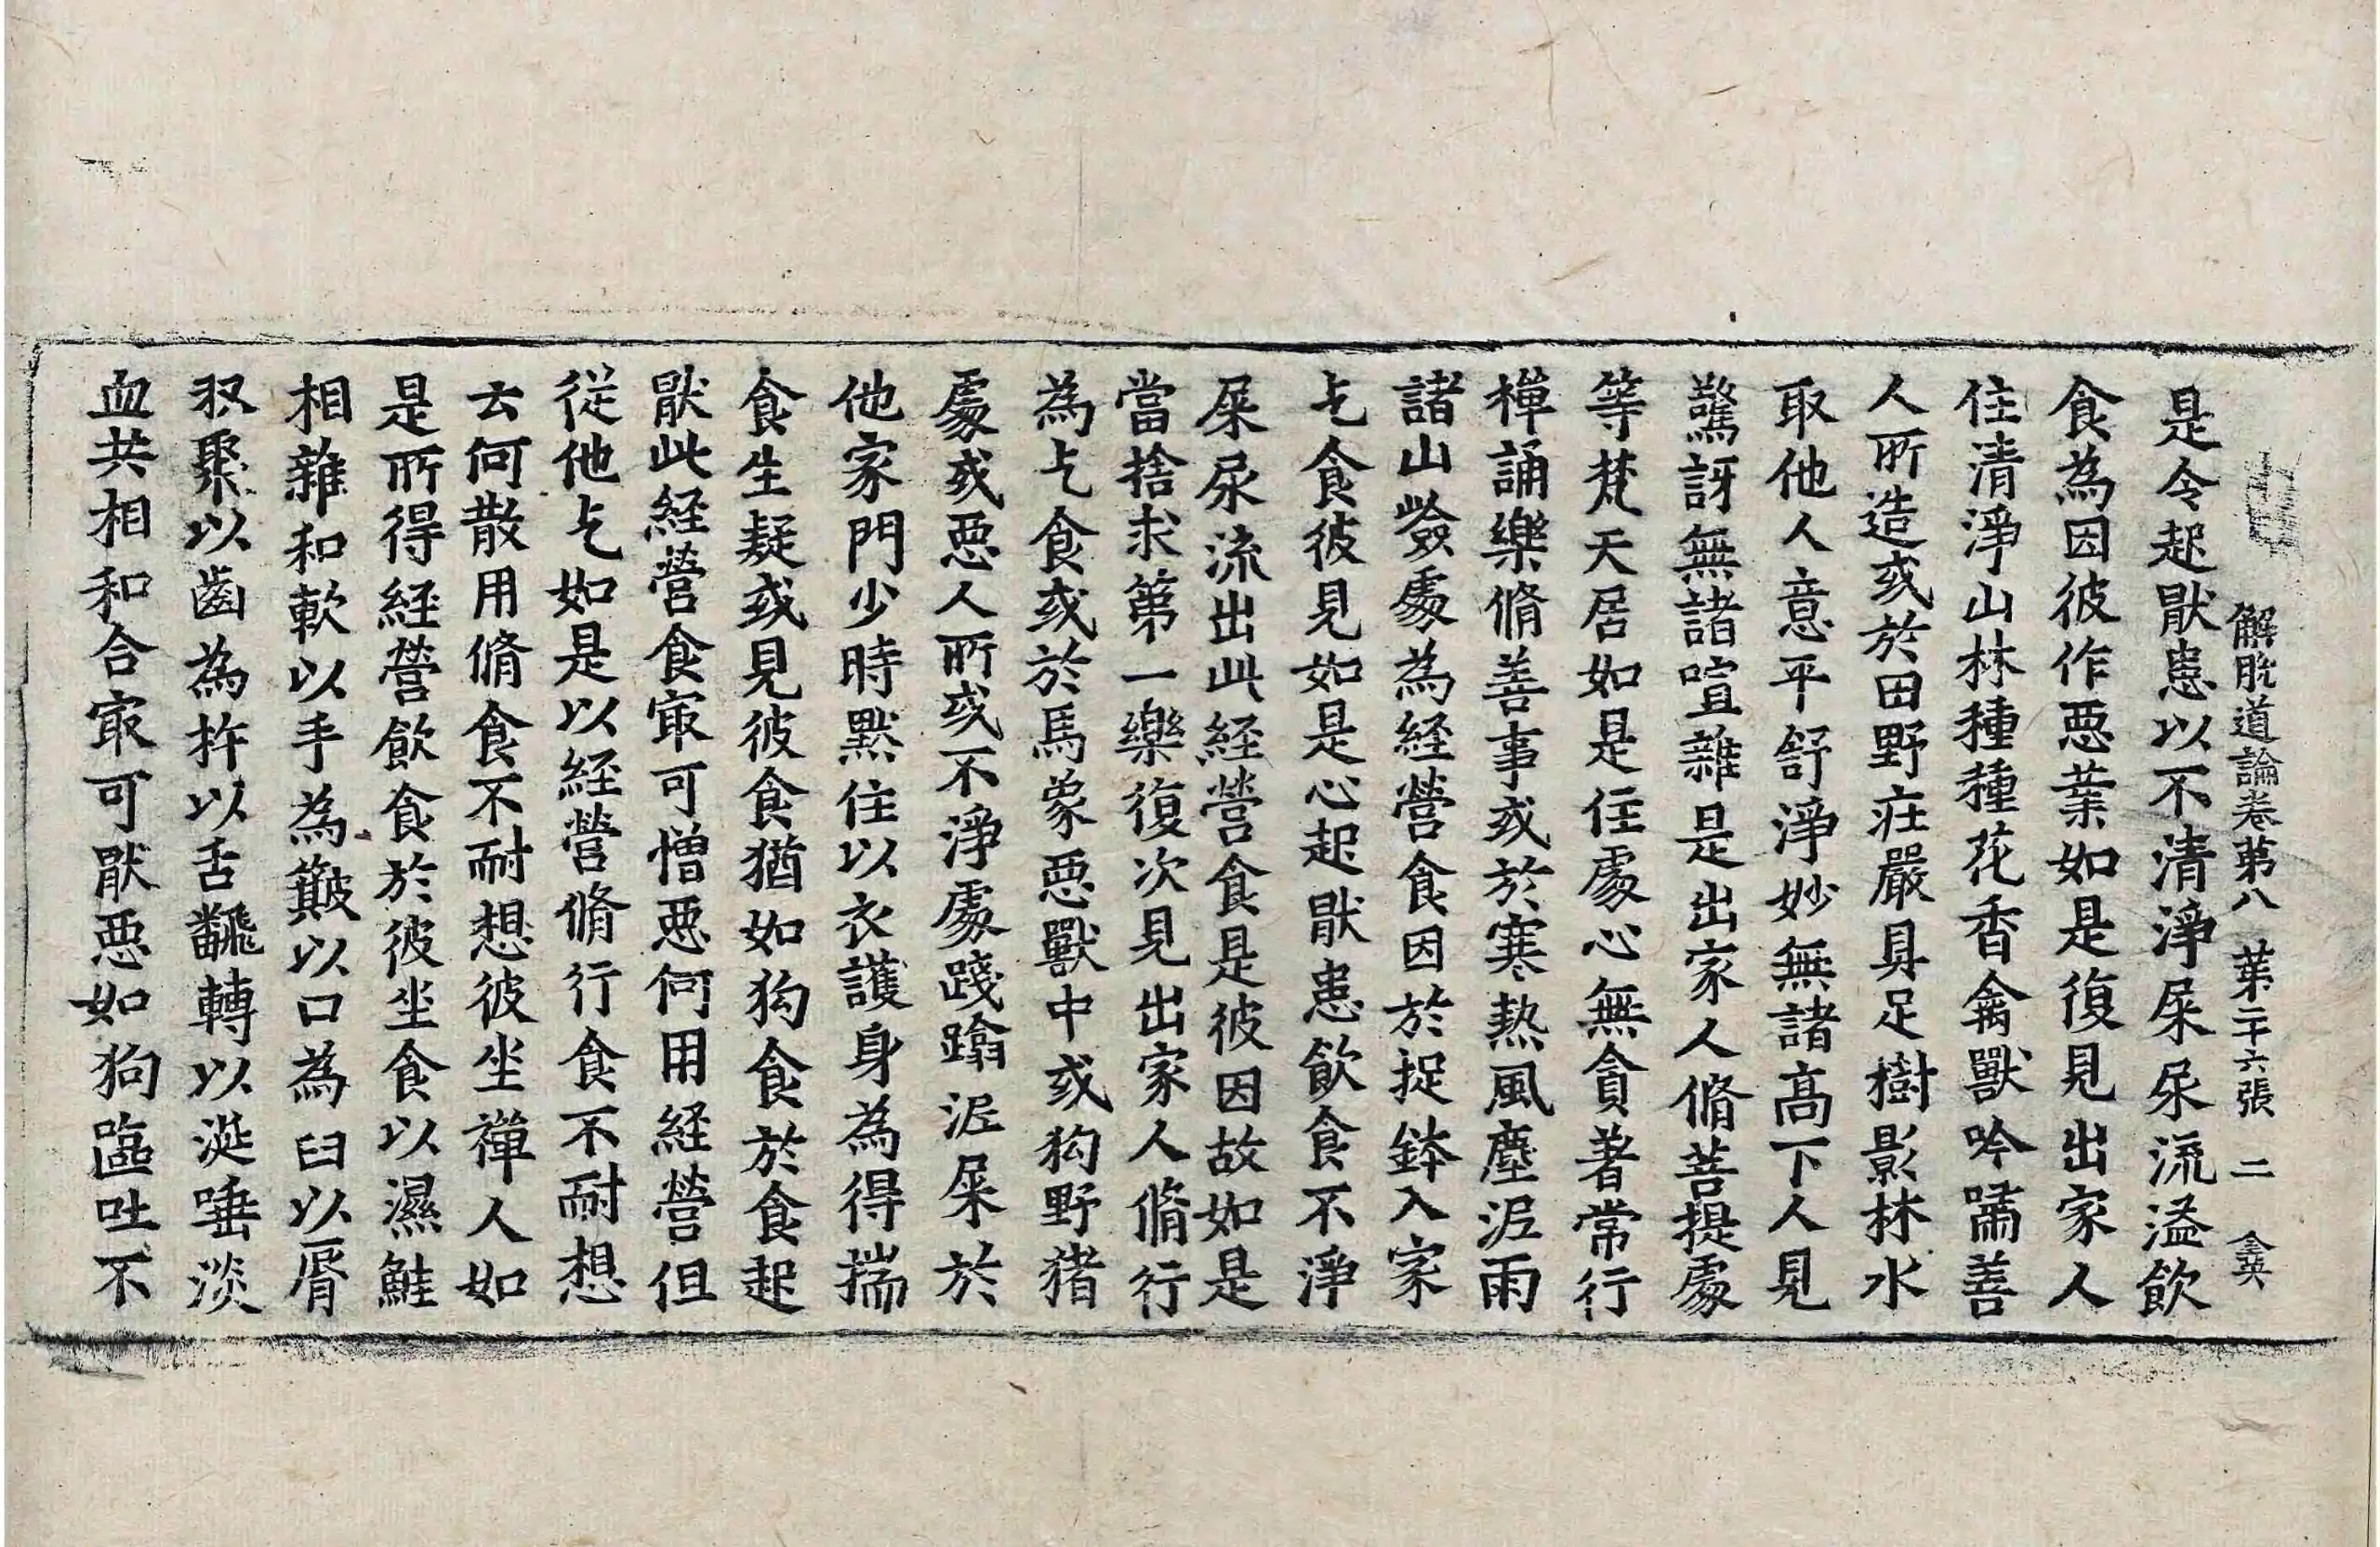 解脫道論卷第八 第二十六張 二 英
是令起猒患以不清淨屎尿流溢飲
食為因彼作惡業如是復見出家人
住清淨山林種種花香禽獸吟嘯善
人所造或於田野莊嚴具足樹影林水
取他人意平舒淨妙無諸高下人見
驚訝無諸喧雜是出家人脩菩提處
等梵天居如是住處心無貪著常行
禪誦樂脩善事或於寒熱風塵泥雨
諸山嶮處為経營食因於捉鉢入家
乞食彼見如是心起猒患飲食不淨
屎尿流出此経營食是彼因故如是
當捨求第一樂復次見出家人脩行
為乞食或於馬象惡獸中或狗野猪
處或惡人所或不淨處踐蹹泥屎於
他家門少時默住以衣護身為得揣
食生疑或見彼食猶如狗食於食起
猒此経營食㝡可憎惡何用経營但
從他乞如是以経營脩行食不耐想
云何散用脩食不耐想彼坐禪人如
是所得経營飲食於彼坐食以濕鮭
相雜和軟以手為簸以口為臼以脣
収聚以齒為杵以舌飜轉以涎唾淡
血共相和合㝡可猒惡如狗嘔吐不